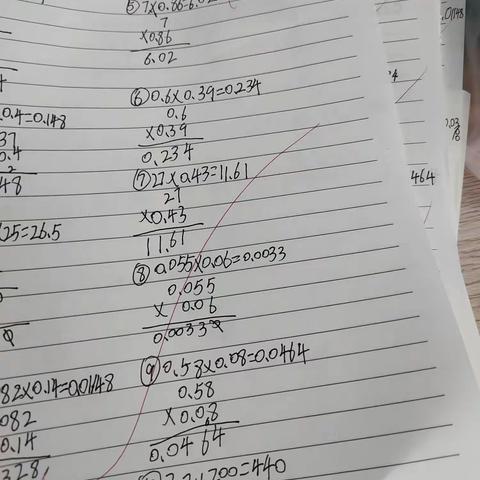 ⑤7×0.86=6.02
7
×0.86
6.02
⑥0.6×0.39=0.234
0.6
×0.39
0.234
⑦27×0.43=11.61
27
×0.43
11.61
⑧0.055×0.06=0.0033
0.055
× 0.06
0.00330
⑨0.58×0.08=0.0464
0.58
×0.08
0.0464
00=440
0.4=0.148
37
0.4
48
25=26.5
82×0.14=0.01148
082
0.14
328
464